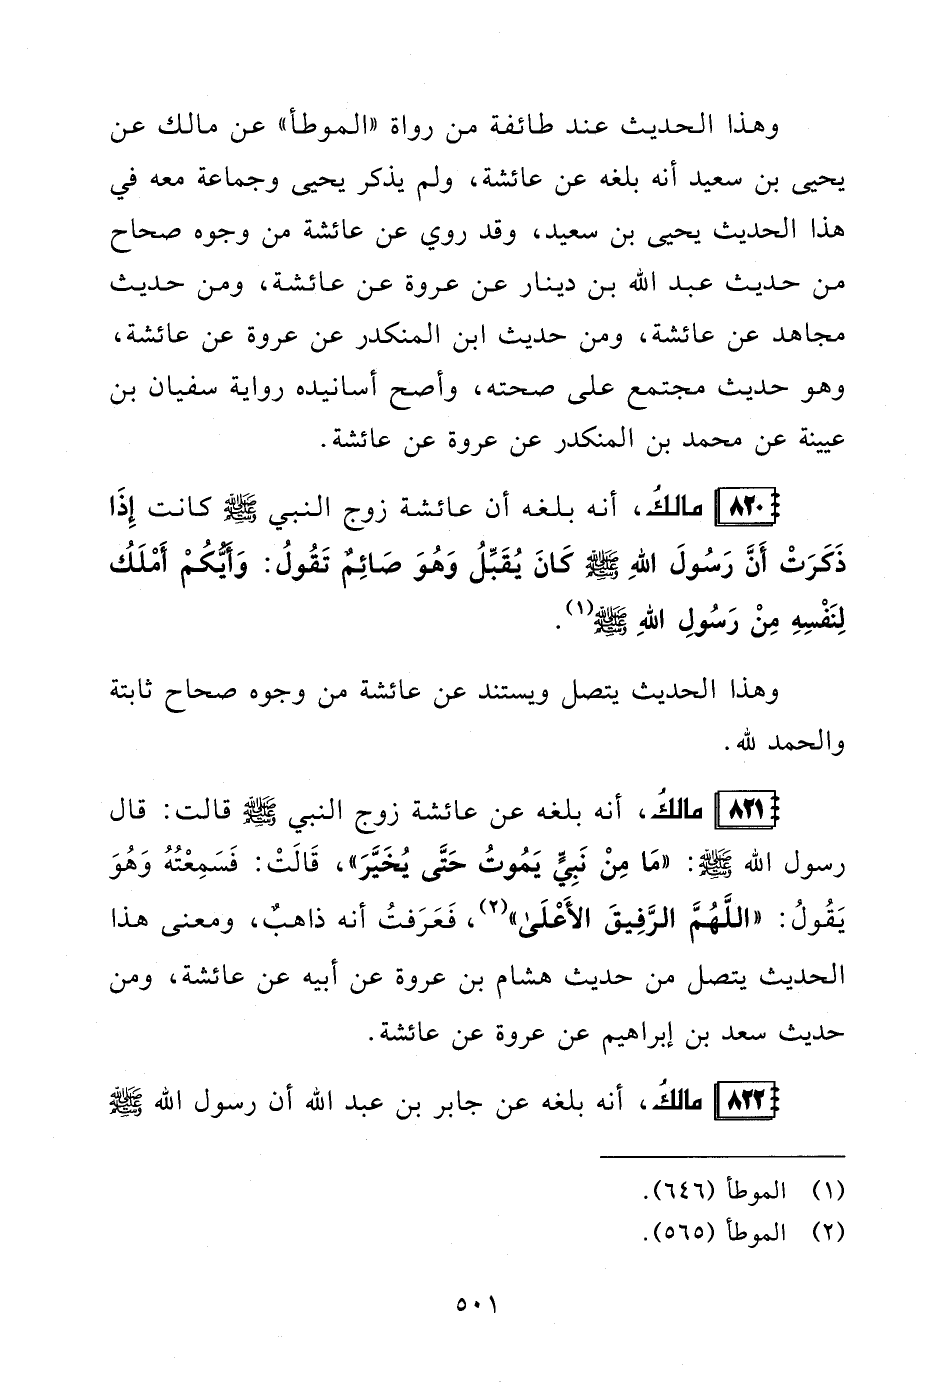 وهذا الحديث عند طائفة من رواة «الموطأ» عن مالك عن
يحيى بن سعيد أنه بلغه عن عائشة، ولم يذكر يحيى وجماعة معه في
هذا الحديث يحيى بن سعيد، وقد روي عن عائشة من وجوه صحاح
من حديث عبد الله بن دينار عن عروة عن عائشة، ومن حديث
مجاهد عن عائشة، ومن حديث ابن المنكدر عن عروة عن عائشة،
وهو حديث مجتمع على صحته، وأصح أسانيده رواية سفيان بن
عيينة عن محمد بن المنكدر عن عروة عن عائشة.
٨٢٠ مالكُ، أنه بلغه أن عائشة زوج النبي ﷺ كانت إِذَا
ذَكَرَتْ أَنَّ رَسُولَ اللهِ ﷺ كَانَ يُقَبِّلُ وَهُوَ صَائِمٌ تَقُولُ: وَأَيُّكُمْ أَمْلَكُ
لِنَفْسِهِ مِنْ رَسُولِ اللهِ ﷺ(١).
وهذا الحديث يتصل ويستند عن عائشة من وجوه صحاح ثابتة
والحمد لله.
٨٢١ مالكُ، أنه بلغه عن عائشة زوج النبي ﷺ قالت: قال
رسول الله ﷺ: «مَا مِنْ نَبِيٍّ يَمُوتُ حَتَّى يُخَيَّرَ»، قَالَتْ: فَسَمِعْتُهُ وَهُوَ
يَقُولُ: «اللَّهُمَّ الرَّفِيقَ الأَعْلَىٰ»(٢)، فَعَرَفتُ أنه ذاهبٌ، ومعنى هذا
الحديث يتصل من حديث هشام بن عروة عن أبيه عن عائشة، ومن
حديث سعد بن إبراهيم عن عروة عن عائشة.
٨٢٢ مالكُ، أنه بلغه عن جابر بن عبد الله أن رسول الله ﷺ
(١) الموطأ (٦٤٦).
(٢) الموطأ (٥٦٥).
٥٠١